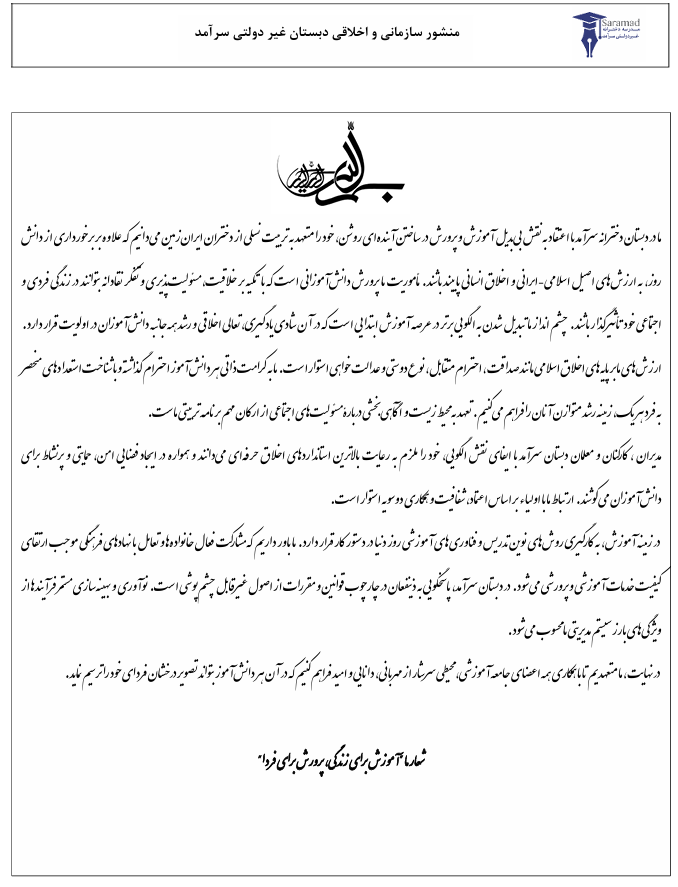 منشور سازمانی و اخلاقی دبستان غیر دولتی سرآمد
Saramad
مدرسه دخترانه
غیردولتی سرآمد
بسم الله الرحمن الرحیم
ما در دبستان دخترانه سرآمد با اعتقاد به نقش بی‌بدیل آموزش و پرورش در ساختن آینده‌ای روشن، خود را متعهد به تربیت نسلی از دختران ایران زمین می‌دانیم که علاوه بر برخورداری از دانش
روز، به ارزش‌های اصیل اسلامی-ایرانی و اخلاق انسانی پایبند باشند. مأموریت ما پرورش دانش‌آموزانی است که با تکیه بر خلاقیت، مسئولیت‌پذیری و تفکر نقادانه بتوانند در زندگی فردی و
اجتماعی خود تأثیرگذار باشند. چشم انداز ما تبدیل شدن به الگویی برتر در عرصه آموزش ابتدایی است که در آن شادی یادگیری، تعالی اخلاقی و رشد همه جانبه دانش‌آموزان در اولویت قرار دارد.
ارزش‌های ما بر پایه‌های اخلاق اسلامی مانند صداقت، احترام متقابل، نوع دوستی و عدالت خواهی استوار است. ما به کرامت ذاتی هر دانش‌آموز احترام گذاشته و با شناخت استعدادهای منحصر
به فرد هر یک، زمینه رشد متوازن آنان را فراهم می‌کنیم. تعهد به محیط زیست و آگاهی‌بخشی درباره مسئولیت‌های اجتماعی از ارکان مهم برنامه تربیتی ماست.
مدیران، کارکنان و معلمان دبستان سرآمد با ایفای نقش الگویی، خود را ملزم به رعایت بالاترین استانداردهای اخلاق حرفه‌ای می‌دانند و همواره در ایجاد فضایی امن، حمایتی و پرنشاط برای
دانش‌آموزان می‌کوشند. ارتباط ما با اولیاء بر اساس اعتماد، شفافیت و همکاری دوسویه استوار است.
در زمینه آموزش، به کارگیری روش‌های نوین تدریس و فناوری‌های آموزشی روز دنیا در دستور کار قرار دارد. ما باور داریم که مشارکت فعال خانواده‌ها و تعامل با نهادهای فرهنگی موجب ارتقای
کیفیت خدمات آموزشی و پرورشی می‌شود. در دبستان سرآمد، پاسخگویی به ذینفعان در چارچوب قوانین و مقررات از اصول غیرقابل چشم‌پوشی است. نوآوری و بهینه‌سازی مستمر فرآیندها از
ویژگی‌های بارز سیستم مدیریتی ما محسوب می‌شود.
در نهایت، ما متعهدیم تا با همکاری همه اعضای جامعه آموزشی، محیطی سرشار از مهربانی، دانایی و امید فراهم کنیم که در آن هر دانش‌آموز بتواند تصویر درخشان فردای خود را ترسیم نماید.
شعار ما "آموزش برای زندگی، پرورش برای فردا"